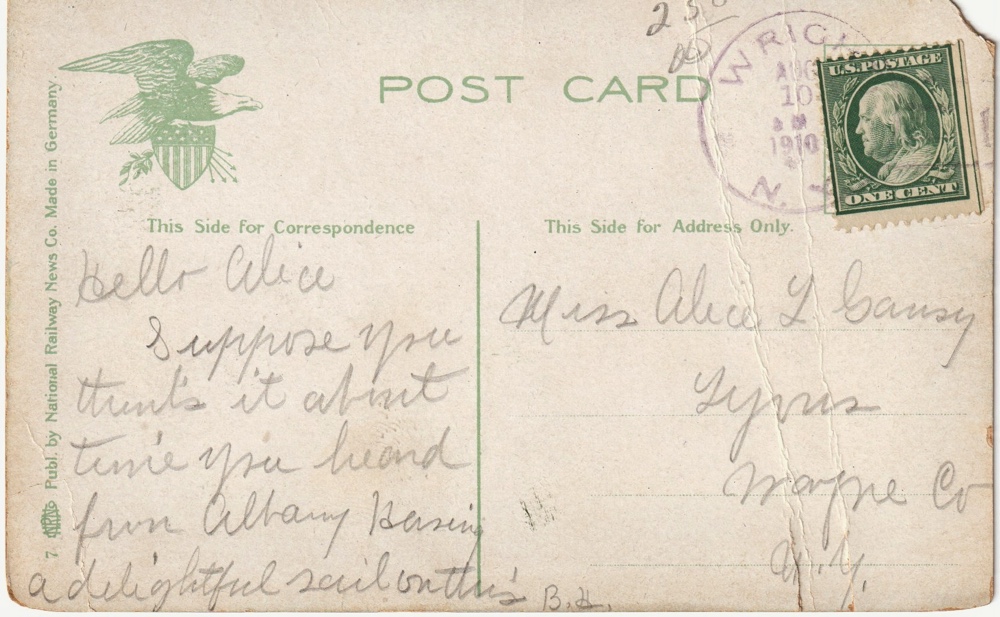 250
00
POST CARD
WRIGH
AUG
10
1910
N. Y.
U.S. POSTAGE
ONE CENT
This Side for Correspondence
This Side for Address Only.
7. Publ. by National Railway News Co. Made in Germany
Hello Alice
Suppose you
think's it about
time you heard
from Albany Having
a delightful sail on this
B.H.
Miss Alice L
Lyons
Wayne Co
N.Y.